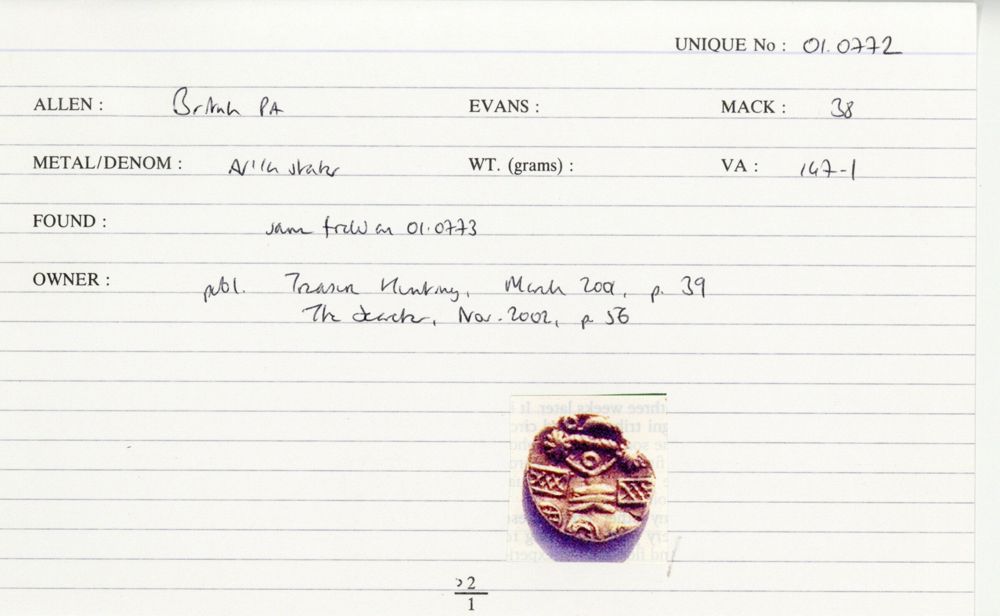 UNIQUE No : 01.0772
ALLEN : British PA EVANS : MACK : 38
METAL/DENOM : stater WT. (grams) : VA : 147-1
FOUND : same field as 01.0773
OWNER : publ. Treasure Hunting, March 2001, p. 39
The Searcher, Nov. 2002, p 56
2
1